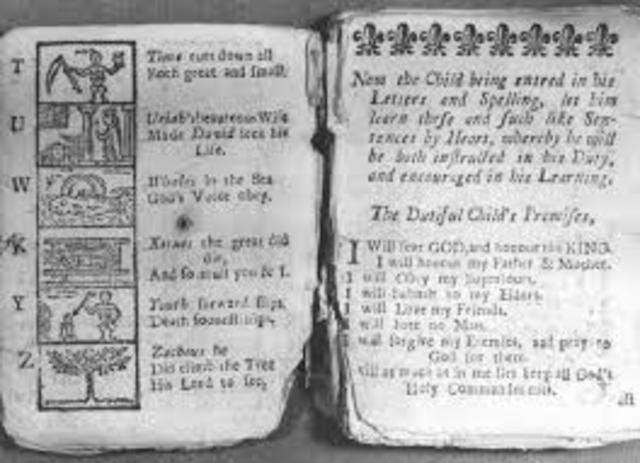 T
Time cuts down all
Both great and small.
U
Uriah's beauteous Wife
Made David seek his
Life.
W
Whales in the Sea
God's Voice obey.
X
Xerxes the great did
die,
And so must you & I.
Y
Youth forward slips,
Death soonest nips.
Z
Zacheus he
Did climb the Tree
His Lord to see,
Now the Child being entred in his
Letters and Spelling, let him
learn these and such like Sen-
tences by Heart, whereby he will
be both instructed in his Duty,
and encouraged in his Learning.
The Dutiful Child's Promises,
I Will fear GOD, and honour the KING.
I will honour my Father & Mother.
I will Obey my Superiours.
I will Submit to my Elders.
I will Love my Friends.
I will hate no Man.
I will forgive my Enemies, and pray to
God for them.
will as much as in me lies keep all God's
Holy Commandments.